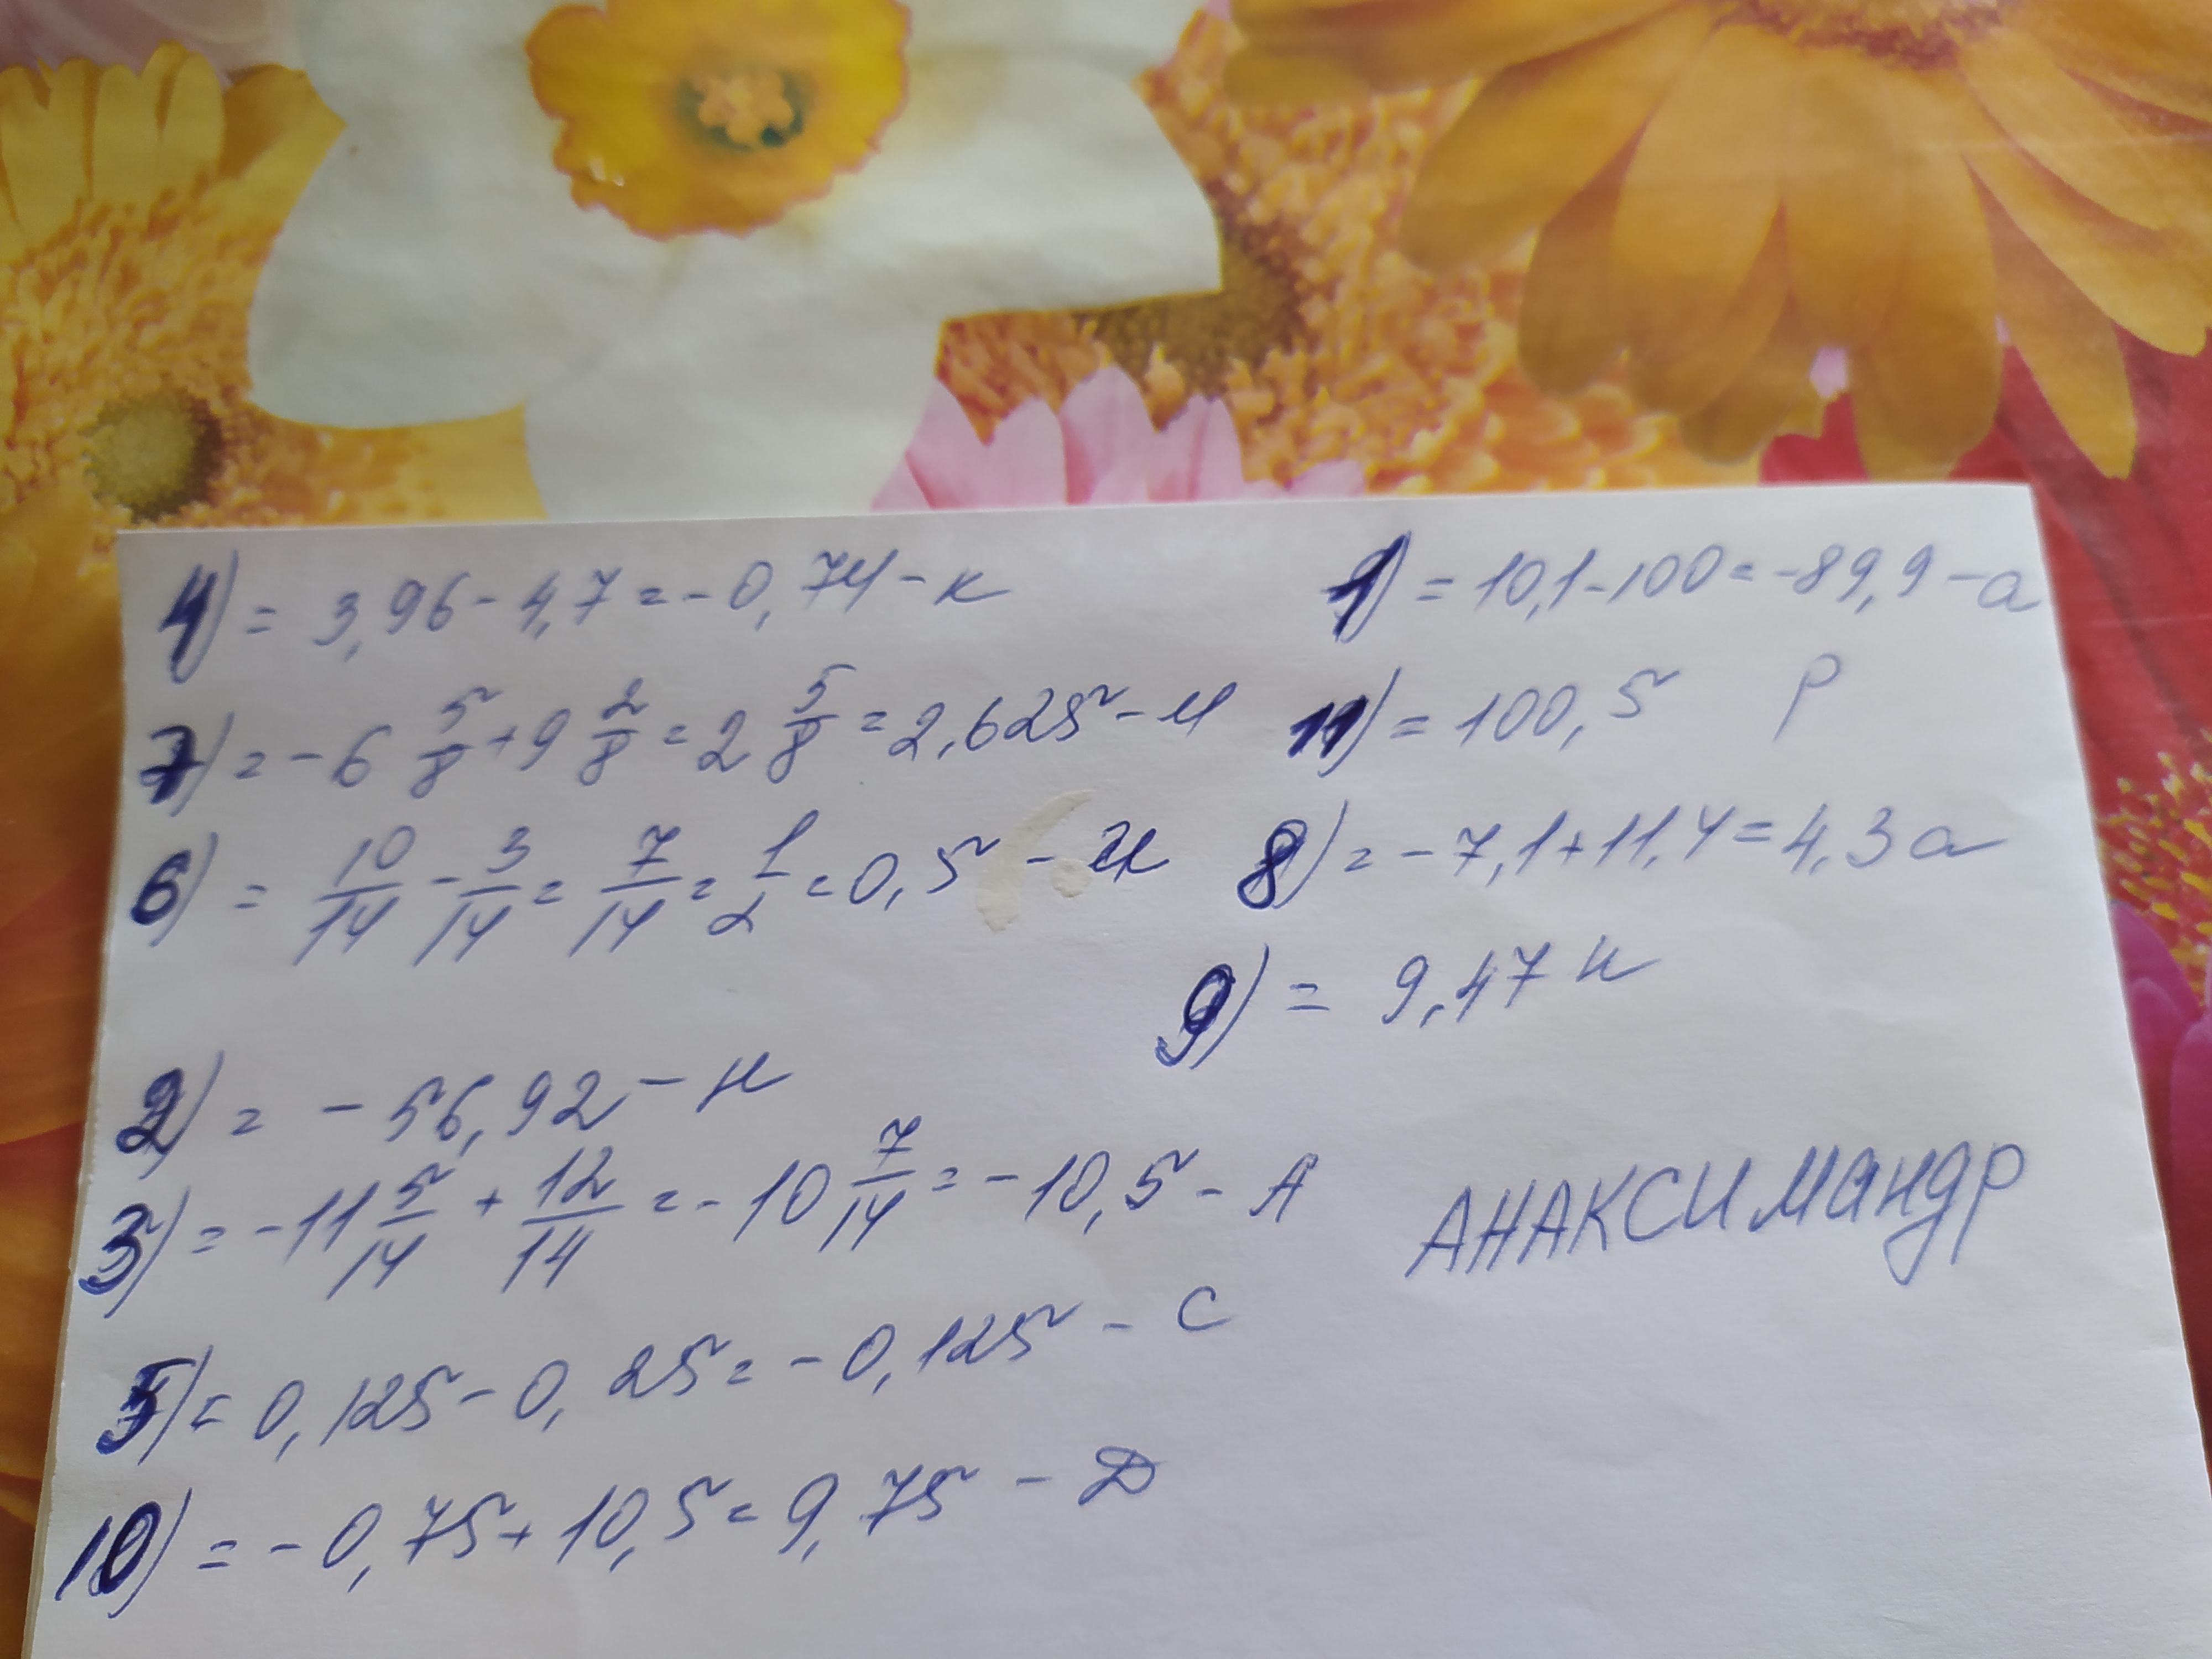 4) = 3,96 - 4,7 = -0,74 - к
7) = -6 5/8 + 9 2/8 = 2 5/8 = 2,625 - м
6) = 10/14 - 3/14 = 7/14 = 1/2 = 0,5 - и
2) = -56,92 - н
3) = -11 5/14 + 12/14 = -10 7/14 = -10,5 - А
5) = 0,125 - 0,25 = -0,125 - С
10) = -0,75 + 10,5 = 9,75 - Д
1) = 10,1 - 100 = -89,9 - а
11) = 100,5 р
8) = -7,1 + 11,4 = 4,3 а
9) = 9,47 н
АНАКСИМАНДР